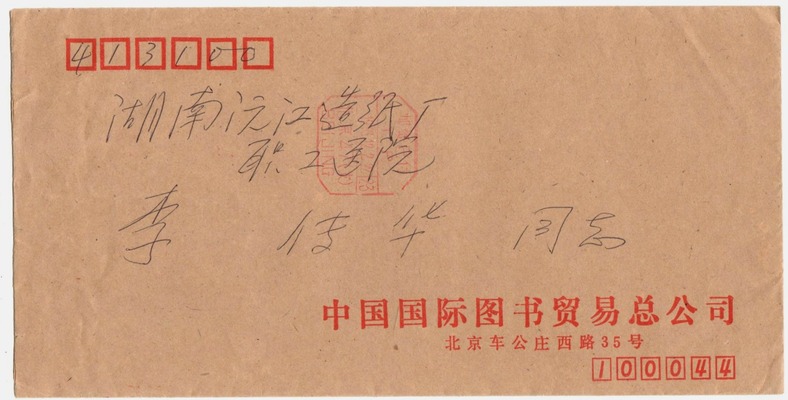 413100
湖南沅江造纸厂
职工医院
李传华同志
中国国际图书贸易总公司
北京车公庄西路35号
100044